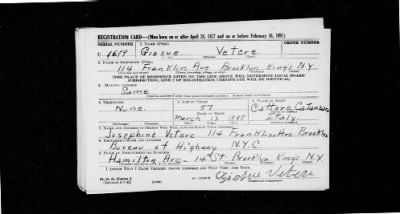 REGISTRATION CARD—(Men born on or after April 28, 1877 and on or before February 16, 1897)
SERIAL NUMBER 1. NAME (Print) ORDER NUMBER
U 1619 Giosue Vetere
2. PLACE OF RESIDENCE (Print)
114 Franklin Ave. Brooklyn Kings N.Y.
(Number and street) (Town, township, village, or city) (County) (State)
[THE PLACE OF RESIDENCE GIVEN ON THE LINE ABOVE WILL DETERMINE LOCAL BOARD
JURISDICTION; LINE 2 OF REGISTRATION CERTIFICATE WILL BE IDENTICAL]
3. MAILING ADDRESS
Same
4. TELEPHONE 5. AGE IN YEARS 6. PLACE OF BIRTH
None 57 Cattoro Catanzaro
DATE OF BIRTH
March 13 1885 Italy
7. NAME AND ADDRESS OF PERSON WHO WILL ALWAYS KNOW YOUR ADDRESS
Josephine Vetere 114 Franklin Ave Brooklyn
8. EMPLOYER'S NAME AND ADDRESS
Bureau of Highway N.Y.C.
9. PLACE OF EMPLOYMENT OR BUSINESS
Hamilton Ave - 14 St Brooklyn Kings N.Y.
I AFFIRM THAT I HAVE VERIFIED ABOVE ANSWERS AND THAT THEY ARE TRUE.
D. S. S. Form 1
Giosue Vetere